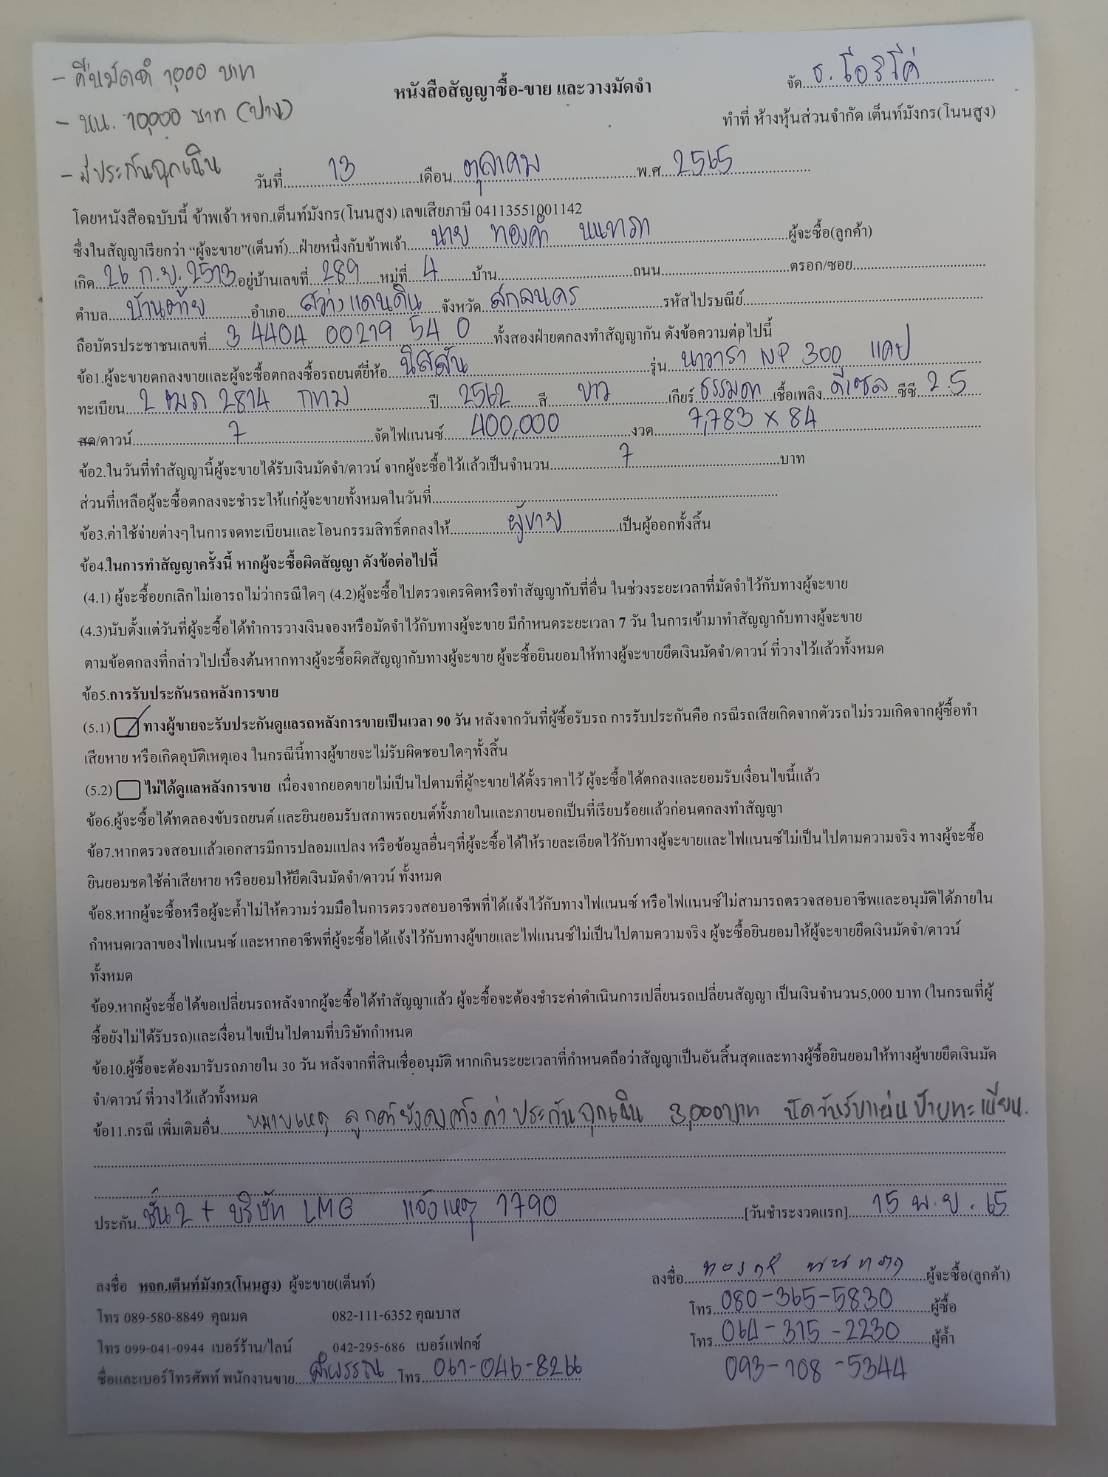 - คืนมัดจำ 1,000 บาท
- นน. 10,000 บาท (ปาน)
- มีประกันฉุกเฉิน
จัด ธ. โอริโค่
หนังสือสัญญาซื้อ-ขาย และวางมัดจำ
ทำที่ ห้างหุ้นส่วนจำกัด เต็นท์มังกร(โนนสูง)
วันที่ 13 เดือน ตุลาคม พ.ศ. 2565
โดยหนังสือฉบับนี้ ข้าพเจ้า หจก.เต็นท์มังกร(โนนสูง) เลขเสียภาษี 04113551001142
ซึ่งในสัญญาเรียกว่า "ผู้จะขาย"(เต็นท์)...ฝ่ายหนึ่งกับข้าพเจ้า นาย ทองคำ ผู้จะซื้อ(ลูกค้า)
เกิด 26 ก.ย. 2513 อยู่บ้านเลขที่ 289 หมู่ที่ 4 บ้าน ถนน ตรอก/ซอย
ตำบล บ้านต้าย อำเภอ สว่างแดนดิน จังหวัด สกลนคร รหัสไปรษณีย์
ถือบัตรประชาชนเลขที่ 3 4404 00219 54 0 ทั้งสองฝ่ายตกลงทำสัญญากัน ดังข้อความต่อไปนี้
ข้อ1.ผู้จะขายตกลงขายและผู้จะซื้อตกลงซื้อรถยนต์ยี่ห้อ นิสสัน รุ่น นาวาร่า NP 300 แคป
ทะเบียน 2 ฒภ 2814 กทม ปี 2562 สี ขาว เกียร์ ธรรมดา เชื้อเพลิง ดีเซล ซีซี 2.5
สด/ดาวน์ 7 จัดไฟแนนซ์ 400,000 งวด 7,783 x 84
ข้อ2.ในวันที่ทำสัญญานี้ผู้จะขายได้รับเงินมัดจำ/ดาวน์ จากผู้จะซื้อไว้แล้วเป็นจำนวน 7 บาท
ส่วนที่เหลือผู้จะซื้อตกลงจะชำระให้แก่ผู้จะขายทั้งหมดในวันที่
ข้อ3.ค่าใช้จ่ายต่างๆในการจดทะเบียนและโอนกรรมสิทธิ์ตกลงให้ ผู้ขาย เป็นผู้ออกทั้งสิ้น
ข้อ4.ในการทำสัญญาครั้งนี้ หากผู้จะซื้อผิดสัญญา ดังข้อต่อไปนี้
(4.1) ผู้จะซื้อยกเลิกไม่เอารถไม่ว่ากรณีใดๆ (4.2)ผู้จะซื้อไปตรวจเครดิตหรือทำสัญญากับที่อื่น ในช่วงระยะเวลาที่มัดจำไว้กับทางผู้จะขาย
(4.3)นับตั้งแต่วันที่ผู้จะซื้อได้ทำการวางเงินจองหรือมัดจำไว้กับทางผู้จะขาย มีกำหนดระยะเวลา 7 วัน ในการเข้ามาทำสัญญากับทางผู้จะขาย
ตามข้อตกลงที่กล่าวไปเบื้องต้นหากทางผู้จะซื้อผิดสัญญากับทางผู้จะขาย ผู้จะซื้อยินยอมให้ทางผู้จะขายยึดเงินมัดจำ/ดาวน์ ที่วางไว้แล้วทั้งหมด
ข้อ5.การรับประกันรถหลังการขาย
(5.1) ทางผู้ขายจะรับประกันดูแลรถหลังการขายเป็นเวลา 90 วัน หลังจากวันที่ผู้ซื้อรับรถ การรับประกันคือ กรณีรถเสียเกิดจากตัวรถไม่รวมเกิดจากผู้ซื้อทำ
เสียหาย หรือเกิดอุบัติเหตุเอง ในกรณีนี้ทางผู้ขายจะไม่รับผิดชอบใดๆทั้งสิ้น
(5.2) ไม่ได้ดูแลหลังการขาย เนื่องจากยอดขายไม่เป็นไปตามที่ผู้จะขายได้ตั้งราคาไว้ ผู้จะซื้อได้ตกลงและยอมรับเงื่อนไขนี้แล้ว
ข้อ6.ผู้จะซื้อได้ทดลองขับรถยนต์ และยินยอมรับสภาพรถยนต์ทั้งภายในและภายนอกเป็นที่เรียบร้อยแล้วก่อนตกลงทำสัญญา
ข้อ7.หากตรวจสอบแล้วเอกสารมีการปลอมแปลง หรือข้อมูลอื่นๆที่ผู้จะซื้อได้ให้รายละเอียดไว้กับทางผู้จะขายและไฟแนนซ์ไม่เป็นไปตามความจริง ทางผู้จะซื้อ
ยินยอมชดใช้ค่าเสียหาย หรือยอมให้ยึดเงินมัดจำ/ดาวน์ ทั้งหมด
ข้อ8.หากผู้จะซื้อหรือผู้จะค้ำไม่ให้ความร่วมมือในการตรวจสอบอาชีพที่ได้แจ้งไว้กับทางไฟแนนซ์ หรือไฟแนนซ์ไม่สามารถตรวจสอบอาชีพและอนุมัติได้ภายใน
กำหนดเวลาของไฟแนนซ์ และหากอาชีพที่ผู้จะซื้อได้แจ้งไว้กับทางผู้ขายและไฟแนนซ์ไม่เป็นไปตามความจริง ผู้จะซื้อยินยอมให้ผู้จะขายยึดเงินมัดจำ/ดาวน์
ทั้งหมด
ข้อ9.หากผู้จะซื้อได้ขอเปลี่ยนรถหลังจากผู้จะซื้อได้ทำสัญญาแล้ว ผู้จะซื้อจะต้องชำระค่าดำเนินการเปลี่ยนรถเปลี่ยนสัญญา เป็นเงินจำนวน5,000 บาท (ในกรณีที่ผู้
ซื้อยังไม่ได้รับรถ)และเงื่อนไขเป็นไปตามที่บริษัทกำหนด
ข้อ10.ผู้ซื้อจะต้องมารับรถภายใน 30 วัน หลังจากที่สินเชื่ออนุมัติ หากเกินระยะเวลาที่กำหนดถือว่าสัญญาเป็นอันสิ้นสุดและทางผู้ซื้อยินยอมให้ทางผู้ขายยึดเงินมัด
จำ/ดาวน์ ที่วางไว้แล้วทั้งหมด
ข้อ11.กรณี เพิ่มเติมอื่น หมายเหตุ ลูกค้ายังคงค้างค่าประกันฉุกเฉิน 3,000บาท นัดวันรับแผ่นป้ายทะเบียน.
ประกัน ชั้น 2 + บริษัท LMG แจ้งเหตุ 1790 [วันชำระงวดแรก] 15 พ.ย. 65
ลงชื่อ หจก.เต็นท์มังกร(โนนสูง) ผู้จะขาย(เต็นท์)
ลงชื่อ ทองคำ ผู้จะซื้อ(ลูกค้า)
โทร 089-580-8849 คุณมด 082-111-6352 คุณบาส
โทร 080-365-5830 ผู้ซื้อ
โทร 099-041-0944 เบอร์ร้าน/ไลน์ 042-295-686 เบอร์แฟกซ์
โทร 064-315-2230 ผู้ค้ำ
ชื่อและเบอร์โทรศัพท์ พนักงานขาย ลำพรรณ โทร 061-046-8266
093-108-5344